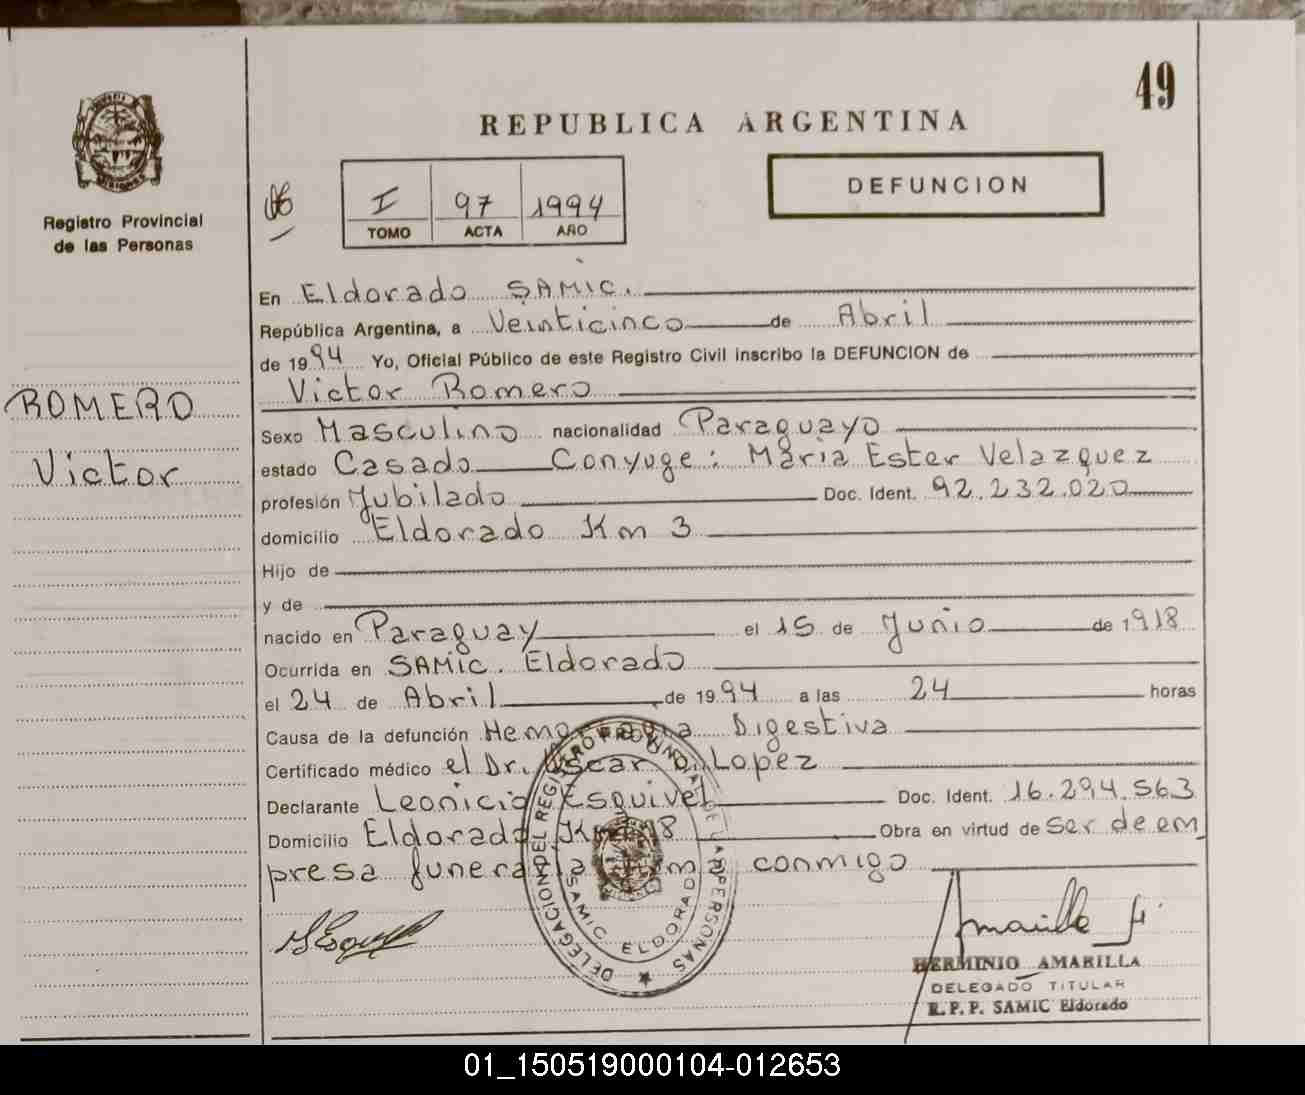 49
REPUBLICA ARGENTINA
DEFUNCION
Registro Provincial
de las Personas
I 97 1994
TOMO ACTA AÑO
ROMERO
Victor
En Eldorado SAMIC.
República Argentina, a Veinticinco de Abril
de 1994 Yo, Oficial Público de este Registro Civil inscribo la DEFUNCION de
Victor Romero
Sexo Masculino nacionalidad Paraguayo
estado Casado Conyuge: Maria Ester Velazquez
profesión Jubilado Doc. Ident. 92.232.020
domicilio Eldorado Km 3
Hijo de
y de
nacido en Paraguay el 15 de Junio de 1918
Ocurrida en SAMIC. Eldorado
el 24 de Abril de 1994 a las 24 horas
Causa de la defunción Hemorragia Digestiva
Certificado médico el Dr. Oscar Lopez
Declarante Leonicio Esquivel Doc. Ident. 16.294.563
Domicilio Eldorado Km 18 Obra en virtud de ser de em
presa funeraria firma conmigo
DELEGACION DEL REGISTRO PROVINCIAL DE LAS PERSONAS
SAMIC ELDORADO
Amarilla H.
HERMINIO AMARILLA
DELEGADO TITULAR
R.P.P. SAMIC Eldorado
01_150519000104-012653